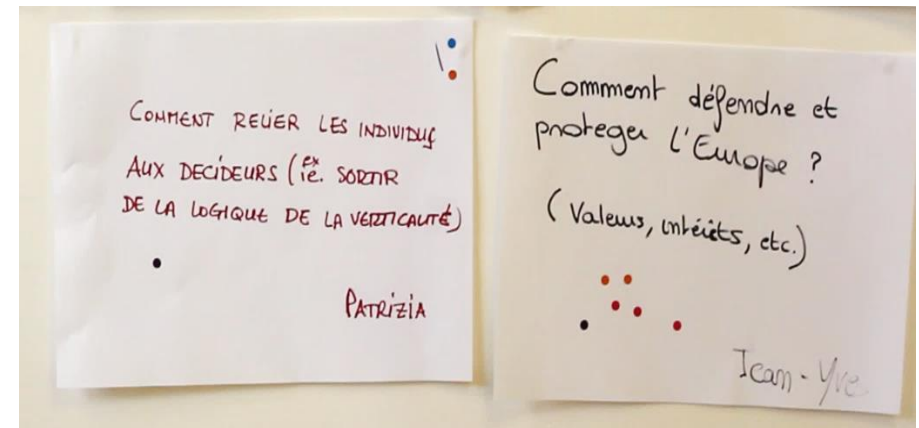 COMMENT RELIER LES INDIVIDUS
AUX DECIDEURS (ex ie. SORTIR
DE LA LOGIQUE DE LA VERTICALITÉ)
PATRIZIA
Comment défendre et
proteger l'Europe ?
(Valeurs, intérêts, etc.)
Jean-Yves